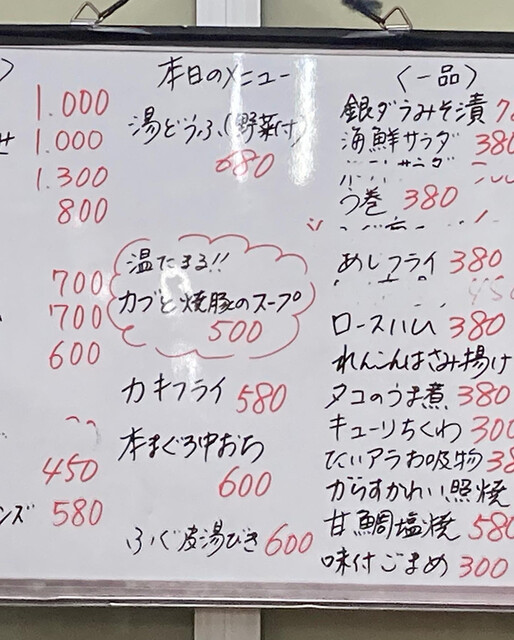 1.000
1.000
1.300
800
700
700
600
450
ンズ 580
本日のメニュー
湯どうふ(野菜付)
680
温たまる!!
カブと焼豚のスープ
500
カキフライ 580
本まぐろ中おち
600
ふぐ皮湯びき 600
〈一品〉
銀ダラみそ漬
海鮮サラダ 380
う巻 380
あじフライ 380
ロースハム 380
れんこんはさみ揚げ
タコのうま煮 380
キューリちくわ 300
たいアラお吸物
からすかれい照焼
甘鯛塩焼 580
味付ごまめ 300